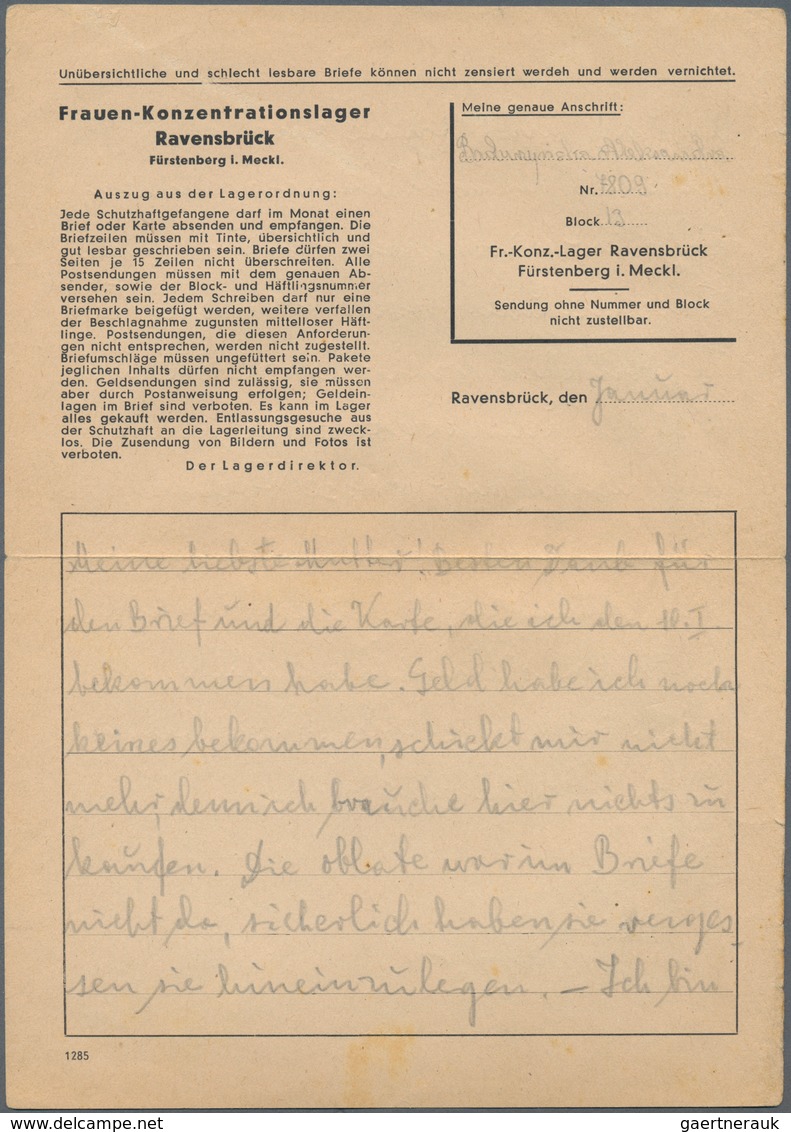 Unübersichtliche und schlecht lesbare Briefe können nicht zensiert werdeh und werden vernichtet.
Frauen-Konzentrationslager
Ravensbrück
Fürstenberg i. Meckl.
Auszug aus der Lagerordnung:
Jede Schutzhaftgefangene darf im Monat einen
Brief oder Karte absenden und empfangen. Die
Briefzeilen müssen mit Tinte, übersichtlich und
gut lesbar geschrieben sein. Briefe dürfen zwei
Seiten je 15 Zeilen nicht überschreiten. Alle
Postsendungen müssen mit dem genauen Ab-
sender, sowie der Block- und Häftlingsnummer
versehen sein. Jedem Schreiben darf nur eine
Briefmarke beigefügt werden, weitere verfallen
der Beschlagnahme zugunsten mittelloser Häft-
linge. Postsendungen, die diesen Anforderun-
gen nicht entsprechen, werden nicht zugestellt.
Briefumschläge müssen ungefüttert sein. Pakete
jeglichen Inhalts dürfen nicht empfangen wer-
den. Geldsendungen sind zulässig, sie müssen
aber durch Postanweisung erfolgen; Geldein-
lagen im Brief sind verboten. Es kann im Lager
alles gekauft werden. Entlassungsgesuche aus
der Schutzhaft an die Lagerleitung sind zweck-
los. Die Zusendung von Bildern und Fotos ist
verboten.
Der Lagerdirektor.
Meine genaue Anschrift:
Nr.
Block 13
Fr.-Konz.-Lager Ravensbrück
Fürstenberg i. Meckl.
Sendung ohne Nummer und Block
nicht zustellbar.
Ravensbrück, den Januar
Meine liebste Mutter! Besten Dank für
den Brief und die Karte, die ich den 10.I.
bekommen habe. Geld habe ich noch
keines bekommen, schickt mir nicht
mehr, denn ich brauche hier nichts zu
kaufen. Die oblate war im Briefe
nicht da, sicherlich haben sie verges-
sen sie hineinzulegen. – Ich bin
1285
www.delcampe.net
gaertnerauk